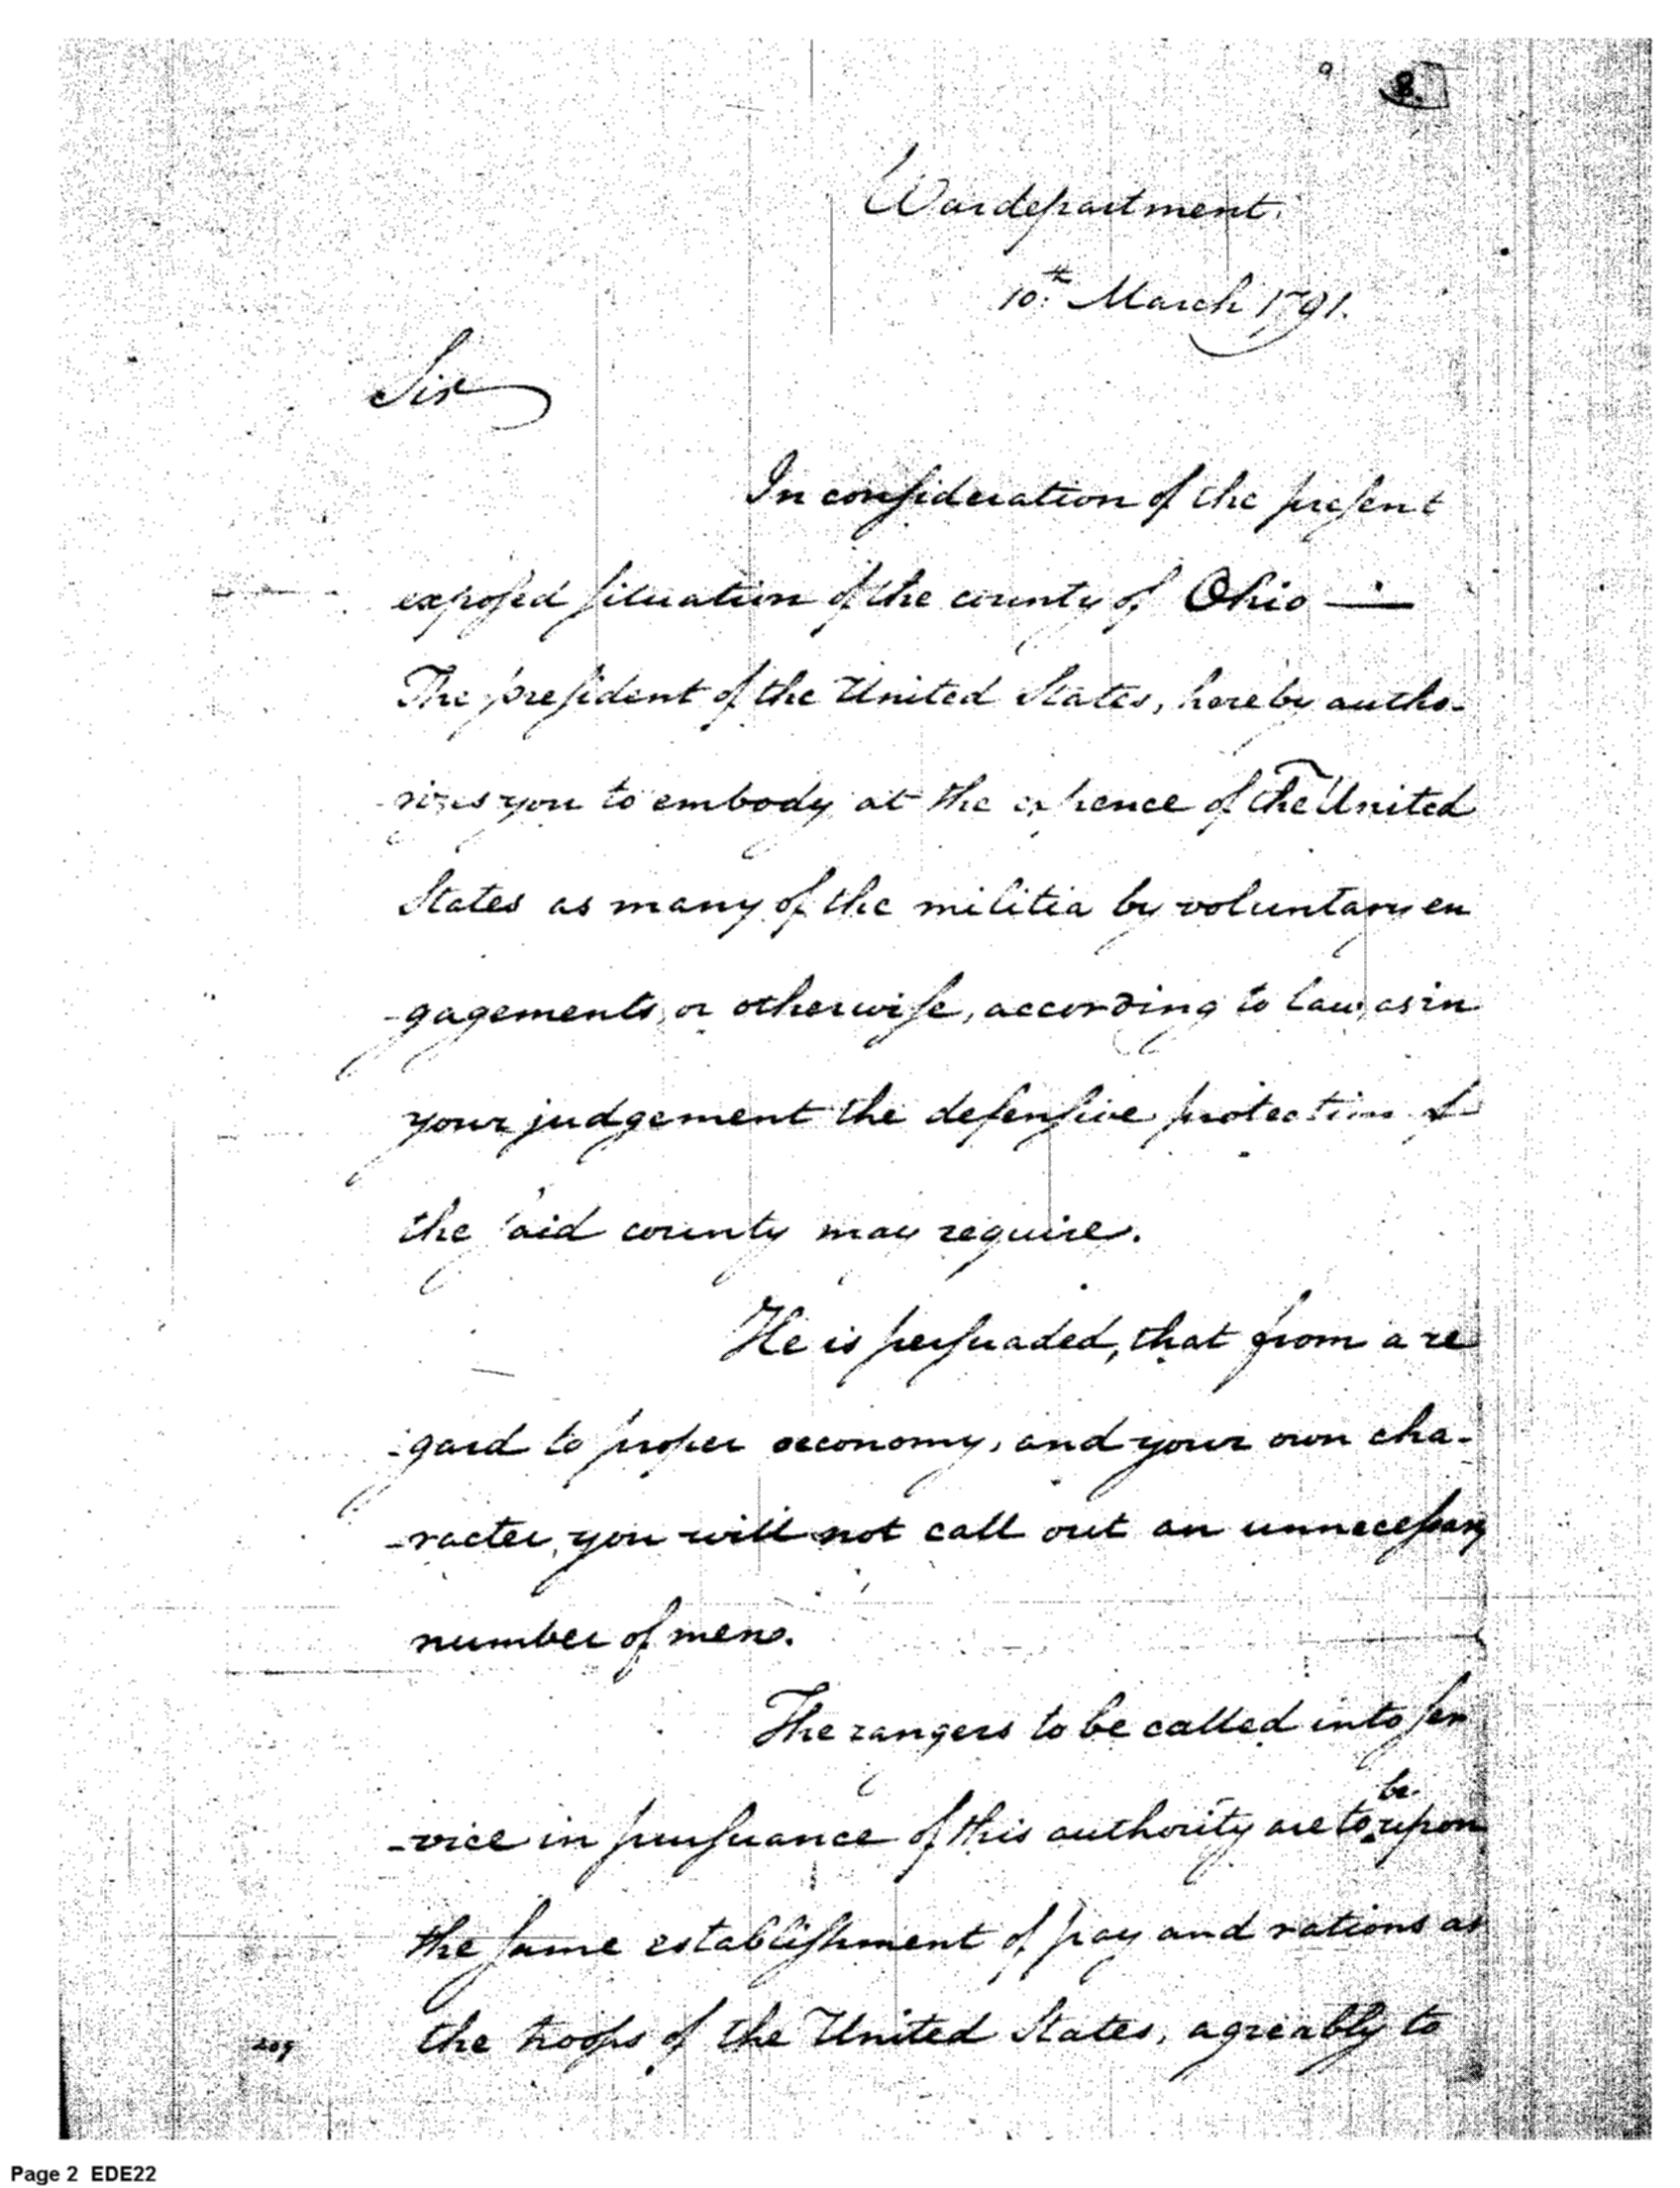 8.
War department.
10.th March 1791.
Sir
In consideration of the present
exposed situation of the county of Ohio —
The president of the United States, hereby autho-
-rizes you to embody at the expence of the United
States as many of the militia by voluntary en
-gagements, or otherwise, according to law, as in
your judgement the defensive protection of
the said county may require.
He is persuaded, that from a re
-gard to proper oeconomy, and your own cha-
-racter, you will not call out an unnecessary
number of men.
The rangers to be called into ser
be
-vice in pursuance of this authority are to upon
the same establishment of pay and rations as
the troops of the United States, agreably to
209
Page 2 EDE22